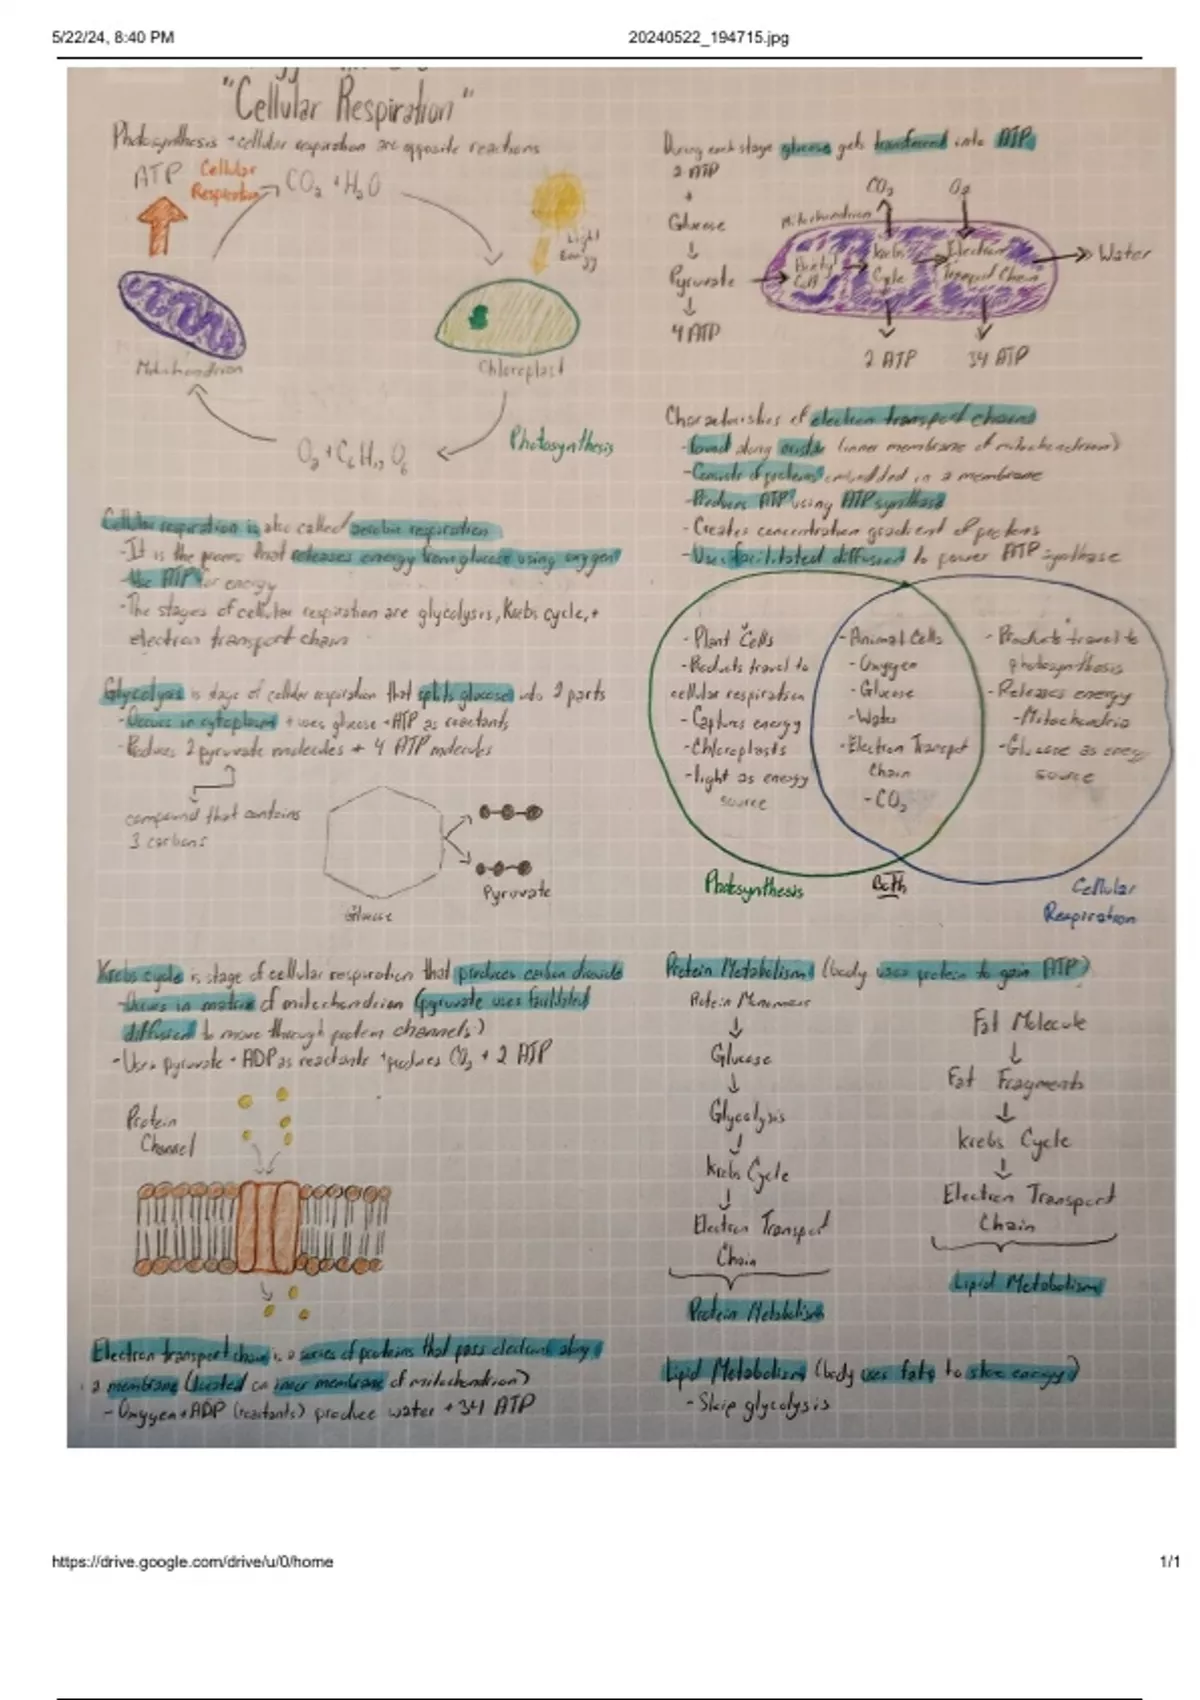 5/22/24, 8:40 PM
20240522_194715.jpg
"Cellular Respiration"
Photosynthesis + cellular respiration are opposite reactions
ATP
Cellular
Respiration
CO₂ + H₂O
Light
Energy
Mitochondrion
Chloroplast
O₂ + C₆H₁₂O₆
Photosynthesis
Cellular respiration is also called aerobic respiration
- It is the process that releases energy from glucose using oxygen
- Use ATP for energy
- The stages of cellular respiration are glycolysis, Krebs cycle, +
electron transport chain
Glycolysis is stage of cellular respiration that splits glucose into 2 parts
- Occurs in cytoplasm + uses glucose + ATP as reactants
- Produces 2 pyruvate molecules + 4 ATP molecules
compound that contains
3 carbons
Glucose
Pyruvate
Krebs cycle is stage of cellular respiration that produces carbon dioxide
- Occurs in matrix of mitochondrion (pyruvate uses facilitated
diffusion to move through protein channels)
- Uses pyruvate + ADP as reactants + produces CO₂ + 2 ATP
Protein
Channel
Electron transport chain is a series of proteins that pass electrons along
a membrane (located on inner membrane of mitochondrion)
- Oxygen + ADP (reactants) produce water + 34 ATP
During each stage glucose gets transferred into ATP
2 ATP
+
Glucose
Pyruvate
4 ATP
Mitochondrion
CO₂
O₂
Krebs
Cycle
Electron
Transport Chain
Water
2 ATP
34 ATP
Characteristics of electron transport chains
- found along cristae (inner membrane of mitochondrion)
- Consists of proteins embedded in a membrane
- Produces ATP using ATP synthase
- Creates concentration gradient of protons
- Uses facilitated diffusion to power ATP synthase
- Plant Cells
- Products travel to
cellular respiration
- Captures energy
- Chloroplasts
- light as energy
source
- Animal Cells
- Oxygen
- Glucose
- Water
- Electron Transpot
Chain
- CO₂
- Products travel to
photosynthesis
- Releases energy
- Mitochondria
- Glucose as energy
source
Photosynthesis
Both
Cellular
Respiration
Protein Metabolism (body uses protein to gain ATP)
Protein Monomers
Glucose
Glycolysis
Krebs Cycle
Electron Transport
Chain
Protein Metabolism
Fat Molecule
Fat Fragments
Krebs Cycle
Electron Transport
Chain
Lipid Metabolism
Lipid Metabolism (body uses fats to store energy)
- Skip glycolysis
https://drive.google.com/drive/u/0/home
1/1